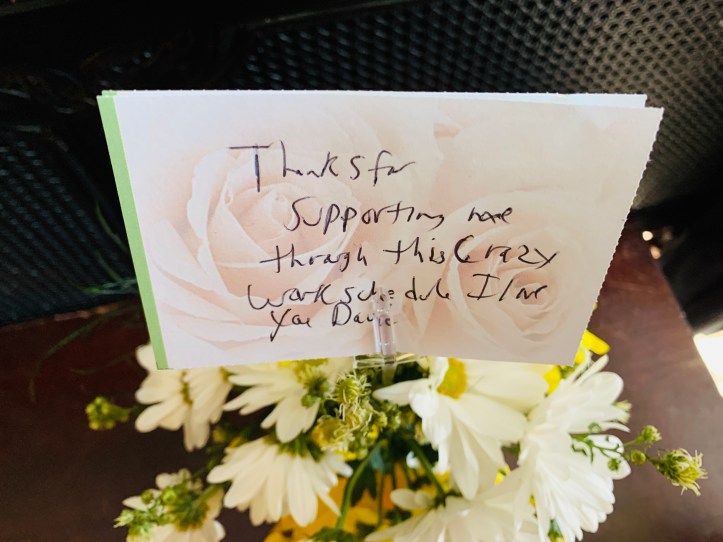 Thanks for
Supporting me
through this Crazy
Work schedule I love
You